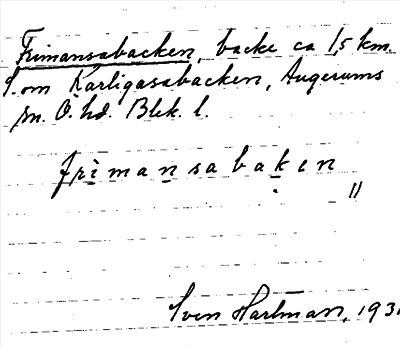 Frimansabacken, backe ca 1,5 km.
S. om Karligasabacken, Augerums
sn. Ö. hd. Blek. l.
frimansabaken
"
Sven Hartman, 193